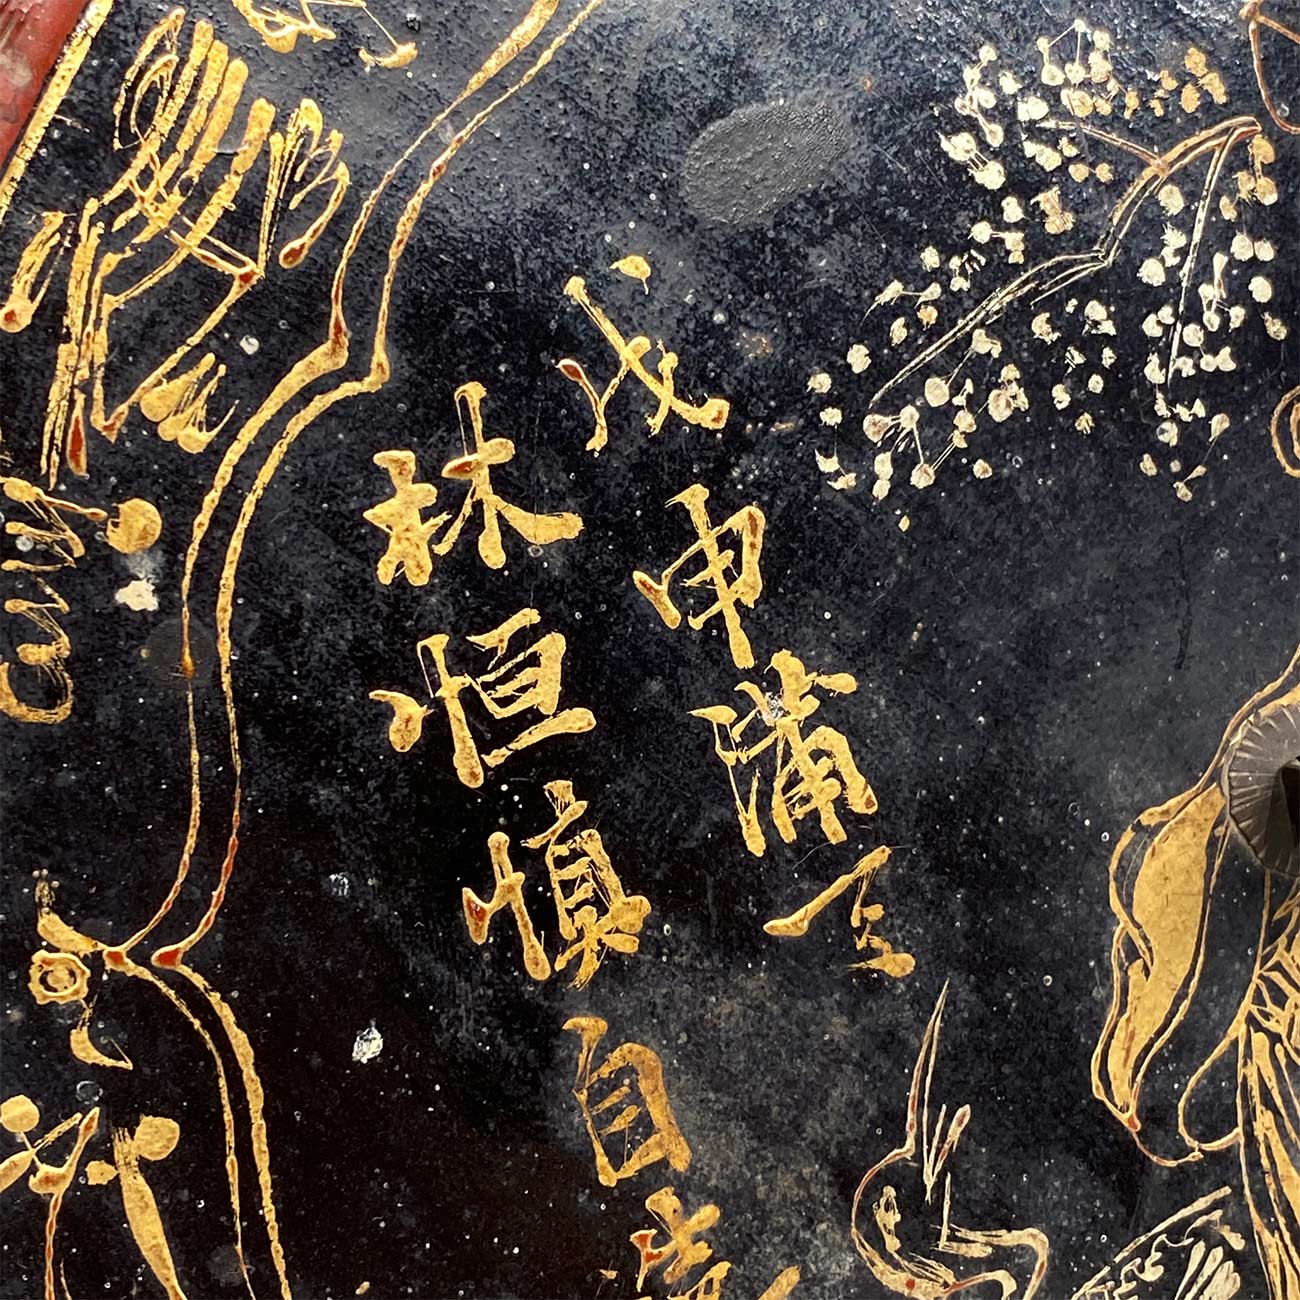 戊申蒲
林恒慎自